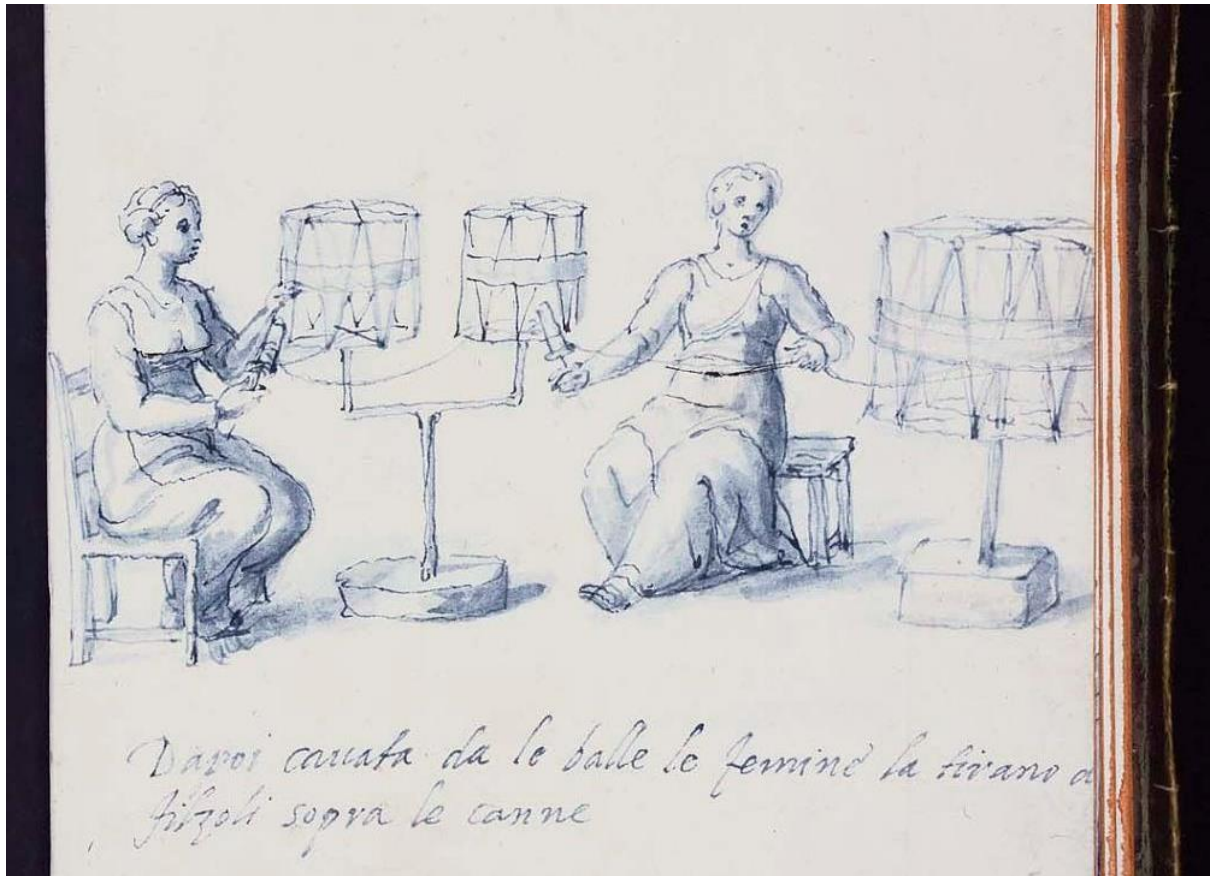 Dapoi cavata da le balle le femine la tirano a
filzoli sopra le canne